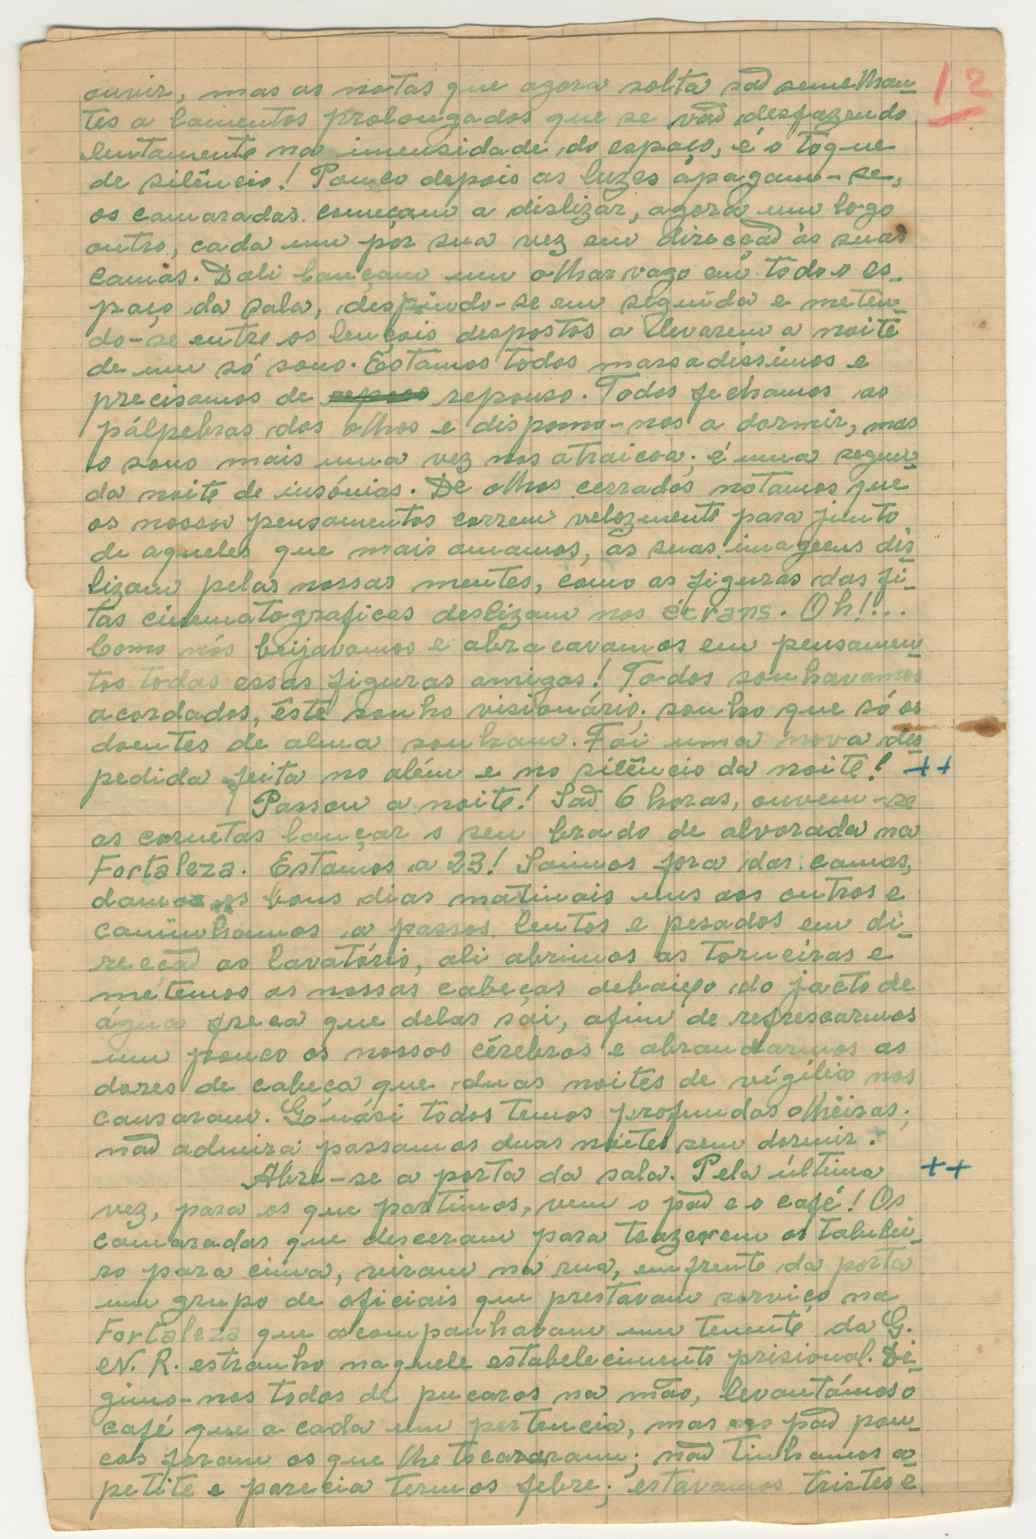 12
ouvir, mas as notas que agora solta são semelhan-
tes a lamentos prolongados que se vão desfazendo
lentamente na imensidade do espaço, é o toque
de silêncio! Pouco depois as luzes apagam-se,
os camaradas começam a dislizar, agora um logo
outro, cada um por sua vez em direcção às suas
camas. Dali lançam um olhar vago em todo o es-
paço da sala, despindo-se em seguida e meten-
do-se entre os lençois despostos a llevarem a noite
de um só sono. Estamos todos massadissimos e
precisamos de repouso. Todos fechamos as
pálpebras dos olhos e dispomo-nos a dormir, mas
o sono mais uma vez nos atraicoa; é uma segun-
da noite de insónias. De olhos cerrados notamos que
os nossos pensamentos correm velozmente para junto
de aqueles que mais amamos, as suas imagens dis-
lizam pelas nossas mentes, como as figuras das fi-
tas cinematograficas deslizam nos écrans. Oh!...
Como nós beijavamos e abracavamos em pensamen-
tos todas essas figuras amigas! Todos sonhavamos
acordados, êste sonho visionário; sonho que só os
doentes de alma sonham. Foi uma nova des-
pedida feita no além e no silêncio da noite! ++
Passou a noite! São 6 horas, ouvem-se
as cornetas lançar o seu brado de alvorada na
Fortaleza. Estamos a 23! Saimos fora das camas,
damos os bons dias matinais uns aos outros e
caminhamos a passos lentos e pesados em di-
recção ao lavatório, ali abrimos as torneiras e
metemos as nossas cabeças debaixo do jacto de
água fresca que delas sai, afim de refrescarmos
um pouco os nossos cérebros e abrandarmos as
dores de cabeca que duas noites de vigília nos
causaram. Quási todos temos profundas olheiras;
não admira passamos duas noites sem dormir.
Abre-se a porta da sala. Pela última ++
vez, para os que partimos, vem o pão e o café! Os
camaradas que desceram para trazerem os tabulei-
ro para cima, viram na rua, emfrente da porta
um grupo de oficiais que prestavam serviço na
Fortaleza que acompanhavam um tenente da G.
N. R. estranho naquele estabelecimento prisional. Di-
gimo-nos todos de pucaros na mão, levantámos o
café que a cada um pertencia, mas pão pou-
cos foram os que lhe tocararam; não tinhamos a-
petite e parecia termos febre; estavamos tristes e